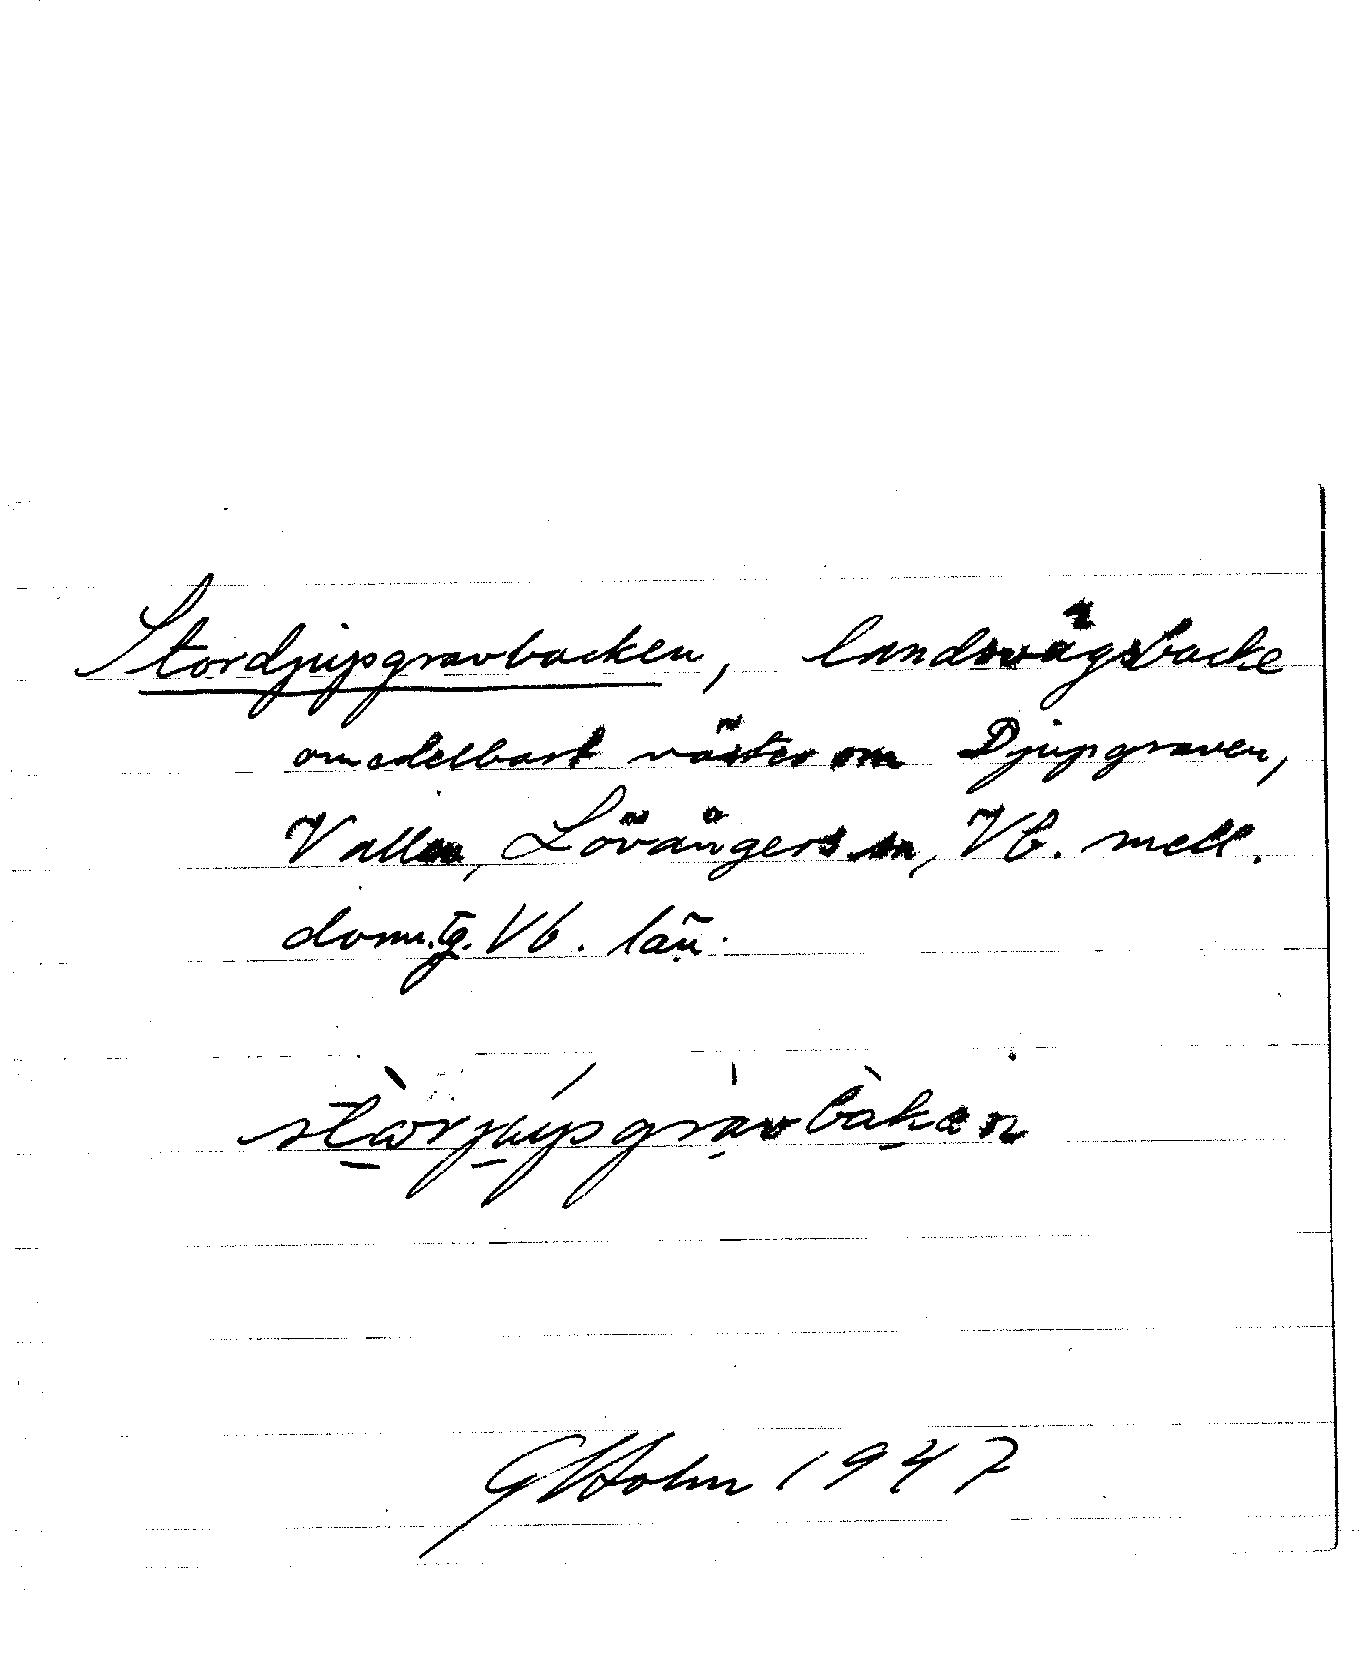 Stordjupgravbacken, landsvägsbacke
omedelbart väster om Djupgraven,
Vallen, Lövångers sn, Vb. mell.
doms.tg. Vb. län.
GHolm 1947